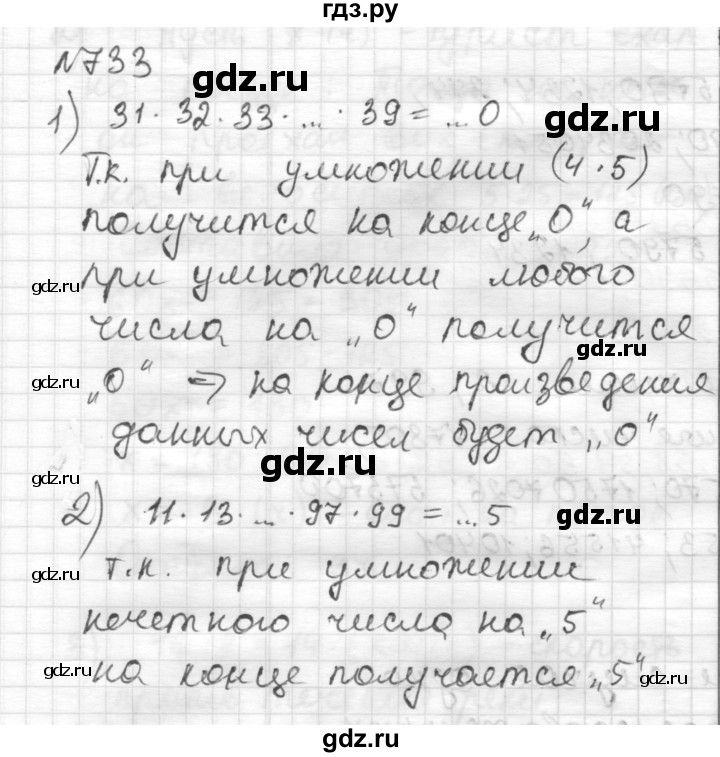 гдз.ру
№733
gdz.ru
gdz.ru
1) 31·32·33·...·39=...0
Т.к. при умножении (4·5)
получится на конце „0“, а
gdz.ru
при умножении любого
числа на „0“ получится
gdz.ru
gdz.ru
„0“ => на конце произведения
данных чисел будет „0“
gdz.ru
gdz.ru
2) 11·13·...·97·99=...5
gdz.ru
gdz.ru
т.к. при умножении
нечетного числа на „5“
gdz.ru
на конце получается „5“
gdz.ru
gdz.ru